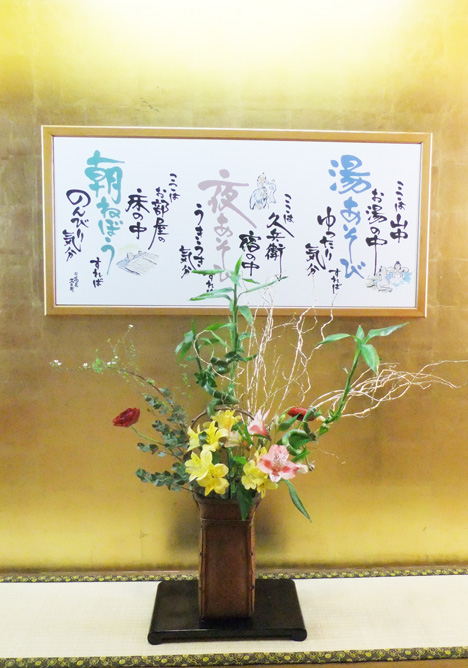 湯あそび
ここは山中
お湯の中
ゆったりすれば
気分
夜あそび
ここは久兵衛
宿の中
うきうきすれば
気分
朝ねぼう
ここはお部屋の
床の中
のんびりすれば
気分